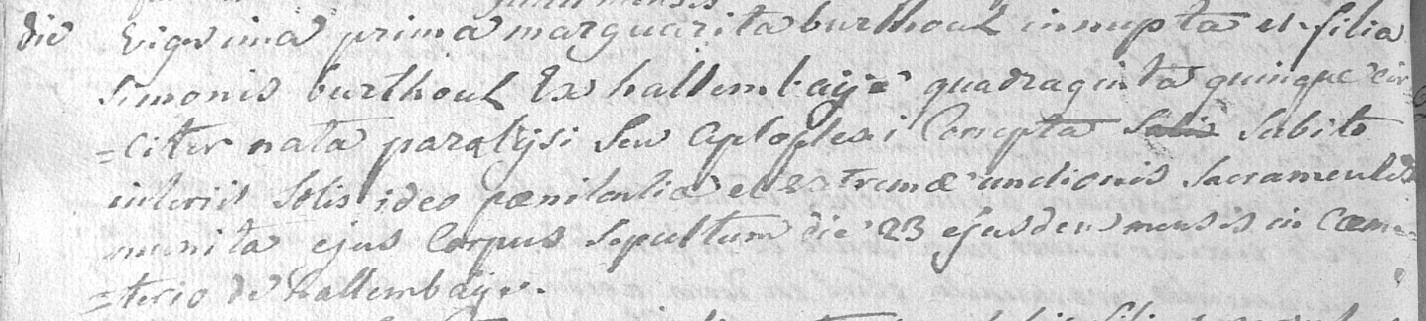 die vigesima prima marguarita burthoul innupta et filia
simonis burthoul Ex hallembaÿe quadraginta quinque cir
=citer nata paralÿsi seu aploplexi Correpta subito
interiit solis ideo pœnitentiæ et extremæ unctionis sacramentis
munita ejus Corpus sepultum die 23 ejusdem mensis in Cœme
=terio de hallembaÿe.